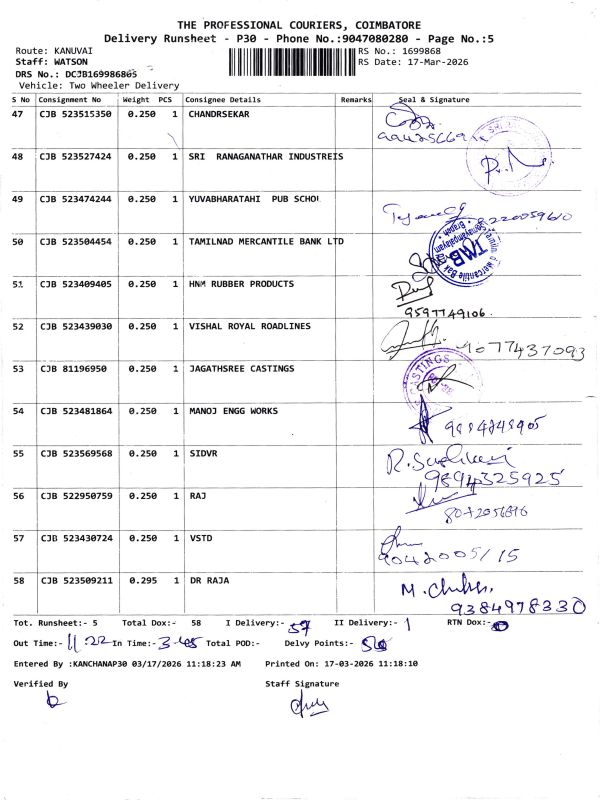 THE PROFESSIONAL COURIERS, COIMBATORE
Delivery Runsheet - P30 - Phone No.:9047080280 - Page No.:5
Route: KANUVAI RS No.: 1699868
Staff: WATSON RS Date: 17-Mar-2026
DRS No.: DCJB169986805
Vehicle: Two Wheeler Delivery
S No Consignment No Weight PCS Consignee Details Remarks Seal & Signature
47 CJB 523515350 0.250 1 CHANDRSEKAR
48 CJB 523527424 0.250 1 SRI RANAGANATHAR INDUSTREIS
49 CJB 523474244 0.250 1 YUVABHARATAHI PUB SCHOL
50 CJB 523504454 0.250 1 TAMILNAD MERCANTILE BANK LTD TMB
51 CJB 523409405 0.250 1 HNM RUBBER PRODUCTS
9597749106.
52 CJB 523439030 0.250 1 VISHAL ROYAL ROADLINES
9077437093
53 CJB 81196950 0.250 1 JAGATHSREE CASTINGS CASTINGS
54 CJB 523481864 0.250 1 MANOJ ENGG WORKS
55 CJB 523569568 0.250 1 SIDVR
9894325925
56 CJB 522950759 0.250 1 RAJ
57 CJB 523430724 0.250 1 VSTD
58 CJB 523509211 0.295 1 DR RAJA
9384978330
Tot. Runsheet:- 5 Total Dox:- 58 I Delivery:- 57 II Delivery:- 1 RTN Dox:- 0
Out Time:- 11.22 In Time:- 3.45 Total POD:- Delvy Points:-
Entered By :KANCHANAP30 03/17/2026 11:18:23 AM Printed On: 17-03-2026 11:18:10
Verified By Staff Signature